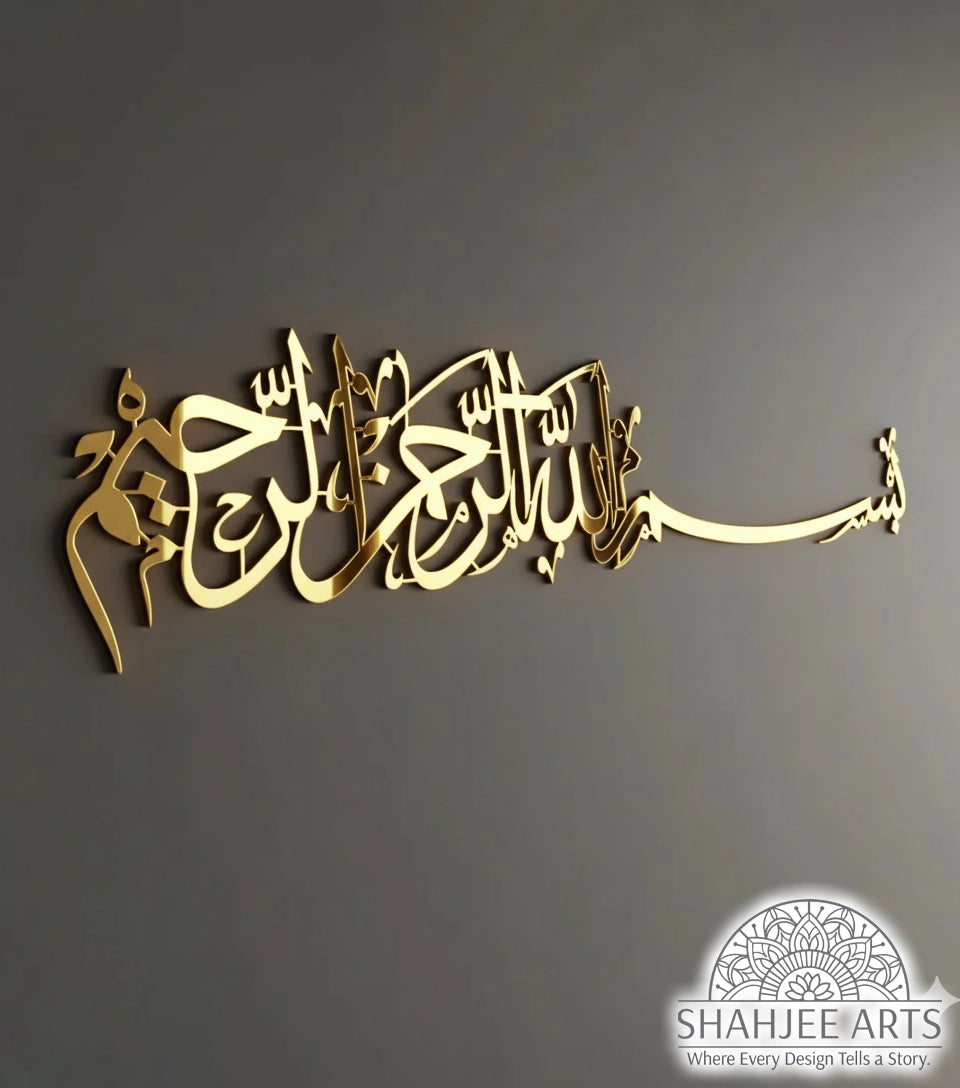 بسم الله الرحمن الرحيم
SHAHJEE ARTS
Where Every Design Tells a Story.